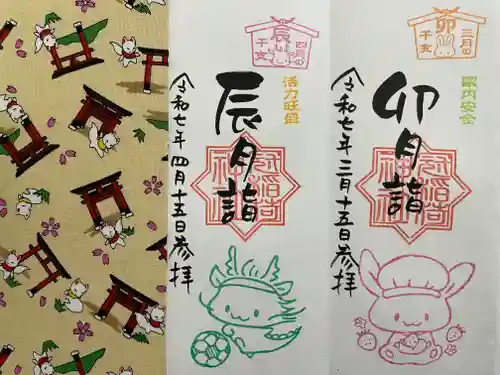 卯
三月の
干支
家内安全
卯月詣
令和七年 三月十五日参拝
辰
四月の
干支
活力旺盛
辰月詣
令和七年 四月十五日参拝